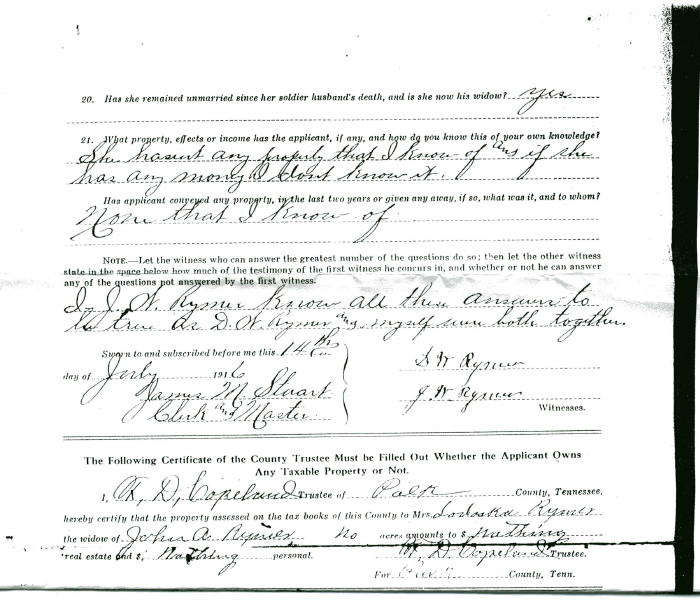 20. Has she remained unmarried since her soldier husband's death, and is she now his widow? yes
21. What property, effects or income has the applicant, if any, and how do you know this of your own knowledge?
She hasent any property that I know of and if she
has any mony I dont know it.
Has applicant conveyed any property, in the last two years or given any away, if so, what was it, and to whom?
None that I know of
NOTE.—Let the witness who can answer the greatest number of the questions do so; then let the other witness
state in the space below how much of the testimony of the first witness he concurs in, and whether or not he can answer
any of the questions not answered by the first witness.
I J. W. Rymer know all these answers to
be true as D. W. Rymer and myself were both together.
Sworn to and subscribed before me this 14th
day of July 1916
D W Rymer
James M. Stuart
J W Rymer
Clerk and Master
Witnesses.
The Following Certificate of the County Trustee Must be Filled Out Whether the Applicant Owns
Any Taxable Property or Not.
I, W. D. Copeland Trustee of Polk County, Tennessee,
hereby certify that the property assessed on the tax books of this County to Mrs. Rymer
the widow of John A. Rymer no acres amounts to $ Nothing
real estate and $, Nothing personal. W. D. Copeland Trustee.
For County, Tenn.